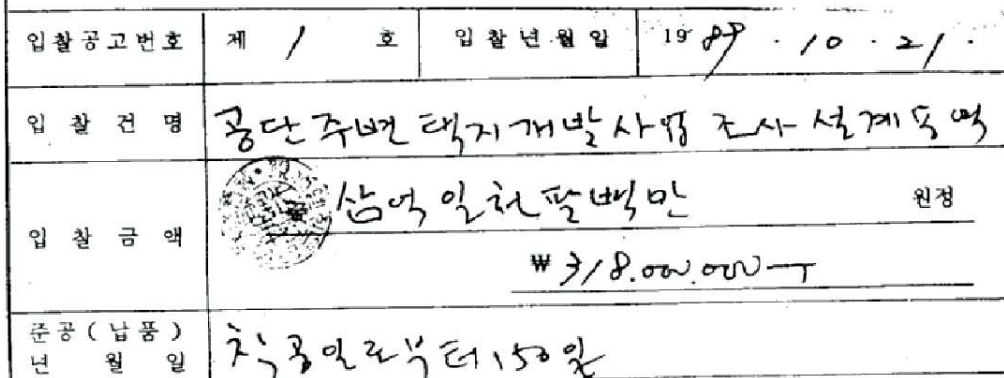 입찰공고번호 제 1 호 입찰년월일 1989 . 10 . 21 .
입 찰 건 명 공단주변 택지개발사업 조사설계용역
삼억일천팔백만 원정
입 찰 금 액
₩ 318.000.000-
준공(납품)
년 월 일 착공일로부터 150일